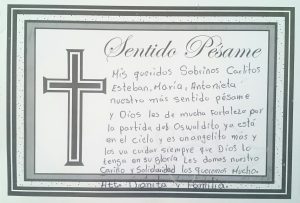 Sentido Pésame
Mis queridos Sobrinos Carlitos
Esteban, María, Antonieta
nuestro más sentido pésame
y Dios les de mucha fortaleza por
la partida del Oswaldito ya está
en el cielo y es un angelito mas y
los va cuidar siempre que Dios lo
tenga en su gloria les damos nuestro
Cariño y Solidaridad los queremos Mucho.
Att: Dianita y Familia.